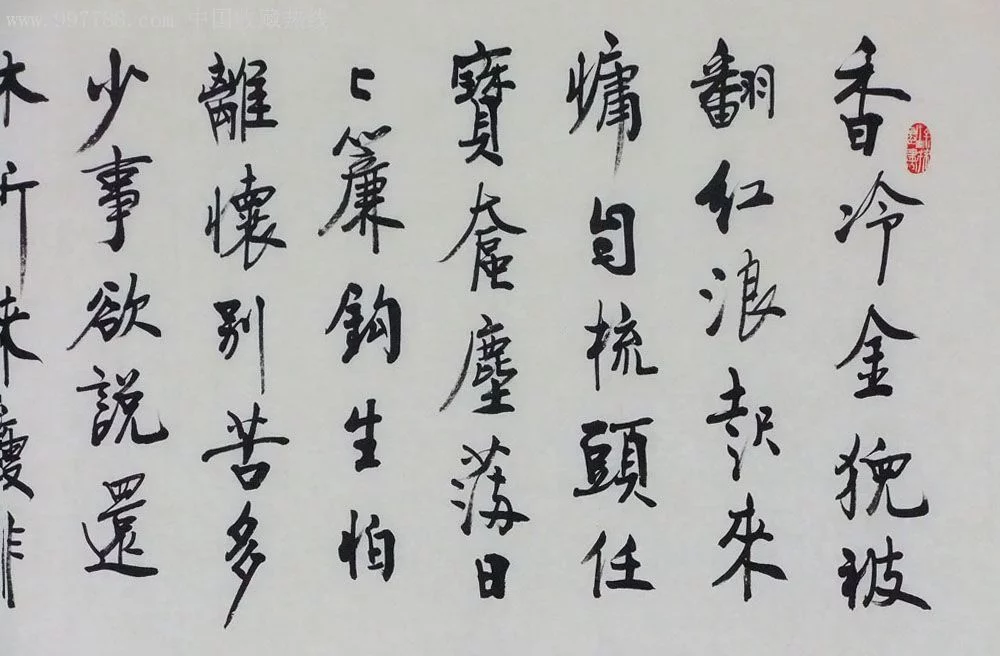 www.997788.com 中国收藏热线
香冷金猊被
翻红浪起來
慵自梳頭任
寶奩塵滿日
上簾鈎生怕
離懷別苦多
少事欲説還
休新来瘦非